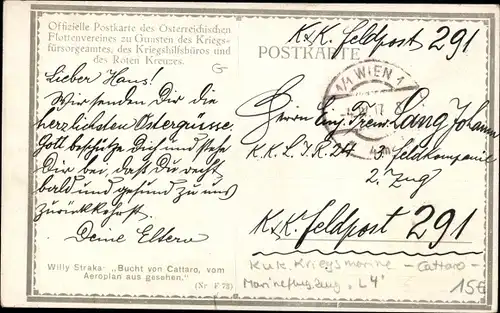 Offizielle Postkarte des Österreichischen
Flottenvereines zu Gunsten des Kriegs-
fürsorgeamtes, des Kriegshilfsbüros und
des Roten Kreuzes.
G
K.u.K. Feldpost 291
POSTKARTE
1/1 WIEN 1
Lieber Hans!
Wir senden Dir die
herzlichsten Ostergrüsse.
Gott beschütze Dich und stehe
Dir bei, daß Du recht
bald und gesund zu uns
zurückkehrst.
Deine Eltern
Herrn Einj. Freiw. Lang Johann
K.K.L.I.R. 24 3. Feldkompanie
2. Zug
K.u.K. Feldpost 291
Willy Straka: „Bucht von Cattaro, vom
Aeroplan aus gesehen."
(Nr. F 72)
K.u.K. Kriegsmarine - Cattaro -
Marineflugzeug „L 4"
15€